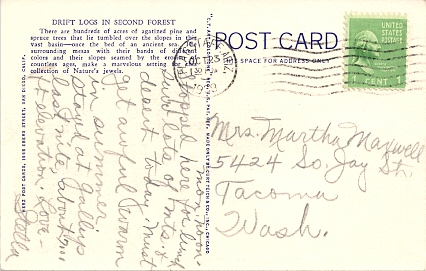 DRIFT LOGS IN SECOND FOREST
There are hundreds of acres of agatized pine and
spruce trees that lie tumbled over the slopes in this
vast basin—once the bed of an ancient sea. The
surrounding mesas with their bands of different
colors and their slopes seamed by the erosion of
countless ages, make a marvelous setting for this
collection of Nature's jewels.
POST CARD
THIS SPACE FOR ADDRESS ONLY
UNITED STATES
POSTAGE
1 CENT 1
mon. noon.
Stopped here for lunch
such lots of mts. &
desert to-day. Must
be awful warm
in summer.
Stayed at Gallup
last nite, about 6,500
ft elevation. Love -
Stella
Mrs. Martha Maxwell
5424 So. Jay St.
Tacoma
Wash.